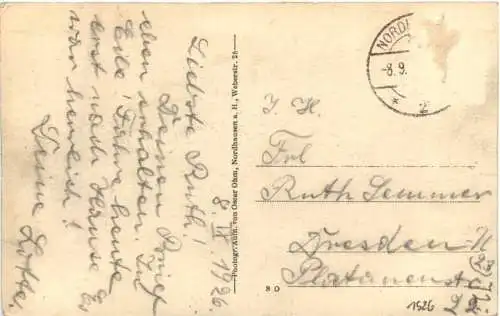 8. IX 1926
Liebste Ruth!
Deinen Brief
eben erhalten. In
Eile! Fahre heute
erst nach Hause. Es
war herrlich!
Deine Lotte.
Photogr. Aufn. von Oscar Ohm, Nordhausen a. H., Weberstr. 25
8 D
NORDH
-8.9.
*
I. H.
Frl
Ruth Semmer
Dresden-N.
Platanenstr.
1526